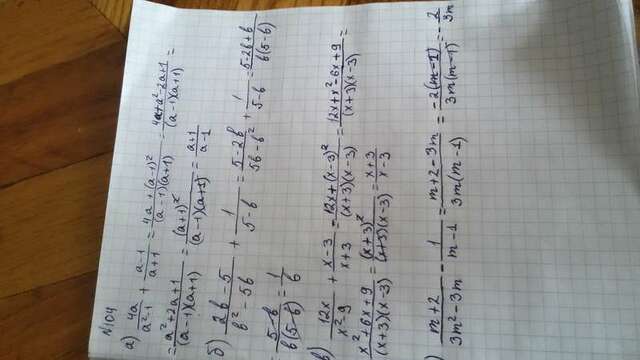 N104
а) 4a/(a²-1) + (a-1)/(a+1) = (4a+(a-1)²)/((a-1)(a+1)) = (4a+a²-2a+1)/((a-1)(a+1)) =
= (a²+2a+1)/((a-1)(a+1)) = (a+1)²/((a-1)(a+1)) = (a+1)/(a-1)
б) (2b-5)/(b²-5b) + 1/(5-b) = (5-2b)/(5b-b²) + 1/(5-b) = (5-2b+b)/(b(5-b))
= (5-b)/(b(5-b)) = 1/b
в) 12x/(x²-9) + (x-3)/(x+3) = (12x+(x-3)²)/((x+3)(x-3)) = (12x+x²-6x+9)/((x+3)(x-3)) =
(x²+6x+9)/((x+3)(x-3)) = (x+3)²/((x+3)(x-3)) = (x+3)/(x-3)
) (m+2)/(3m²-3m) - 1/(m-1) = (m+2-3m)/(3m(m-1)) = -2(m-1)/(3m(m-1)) = -2/(3m)